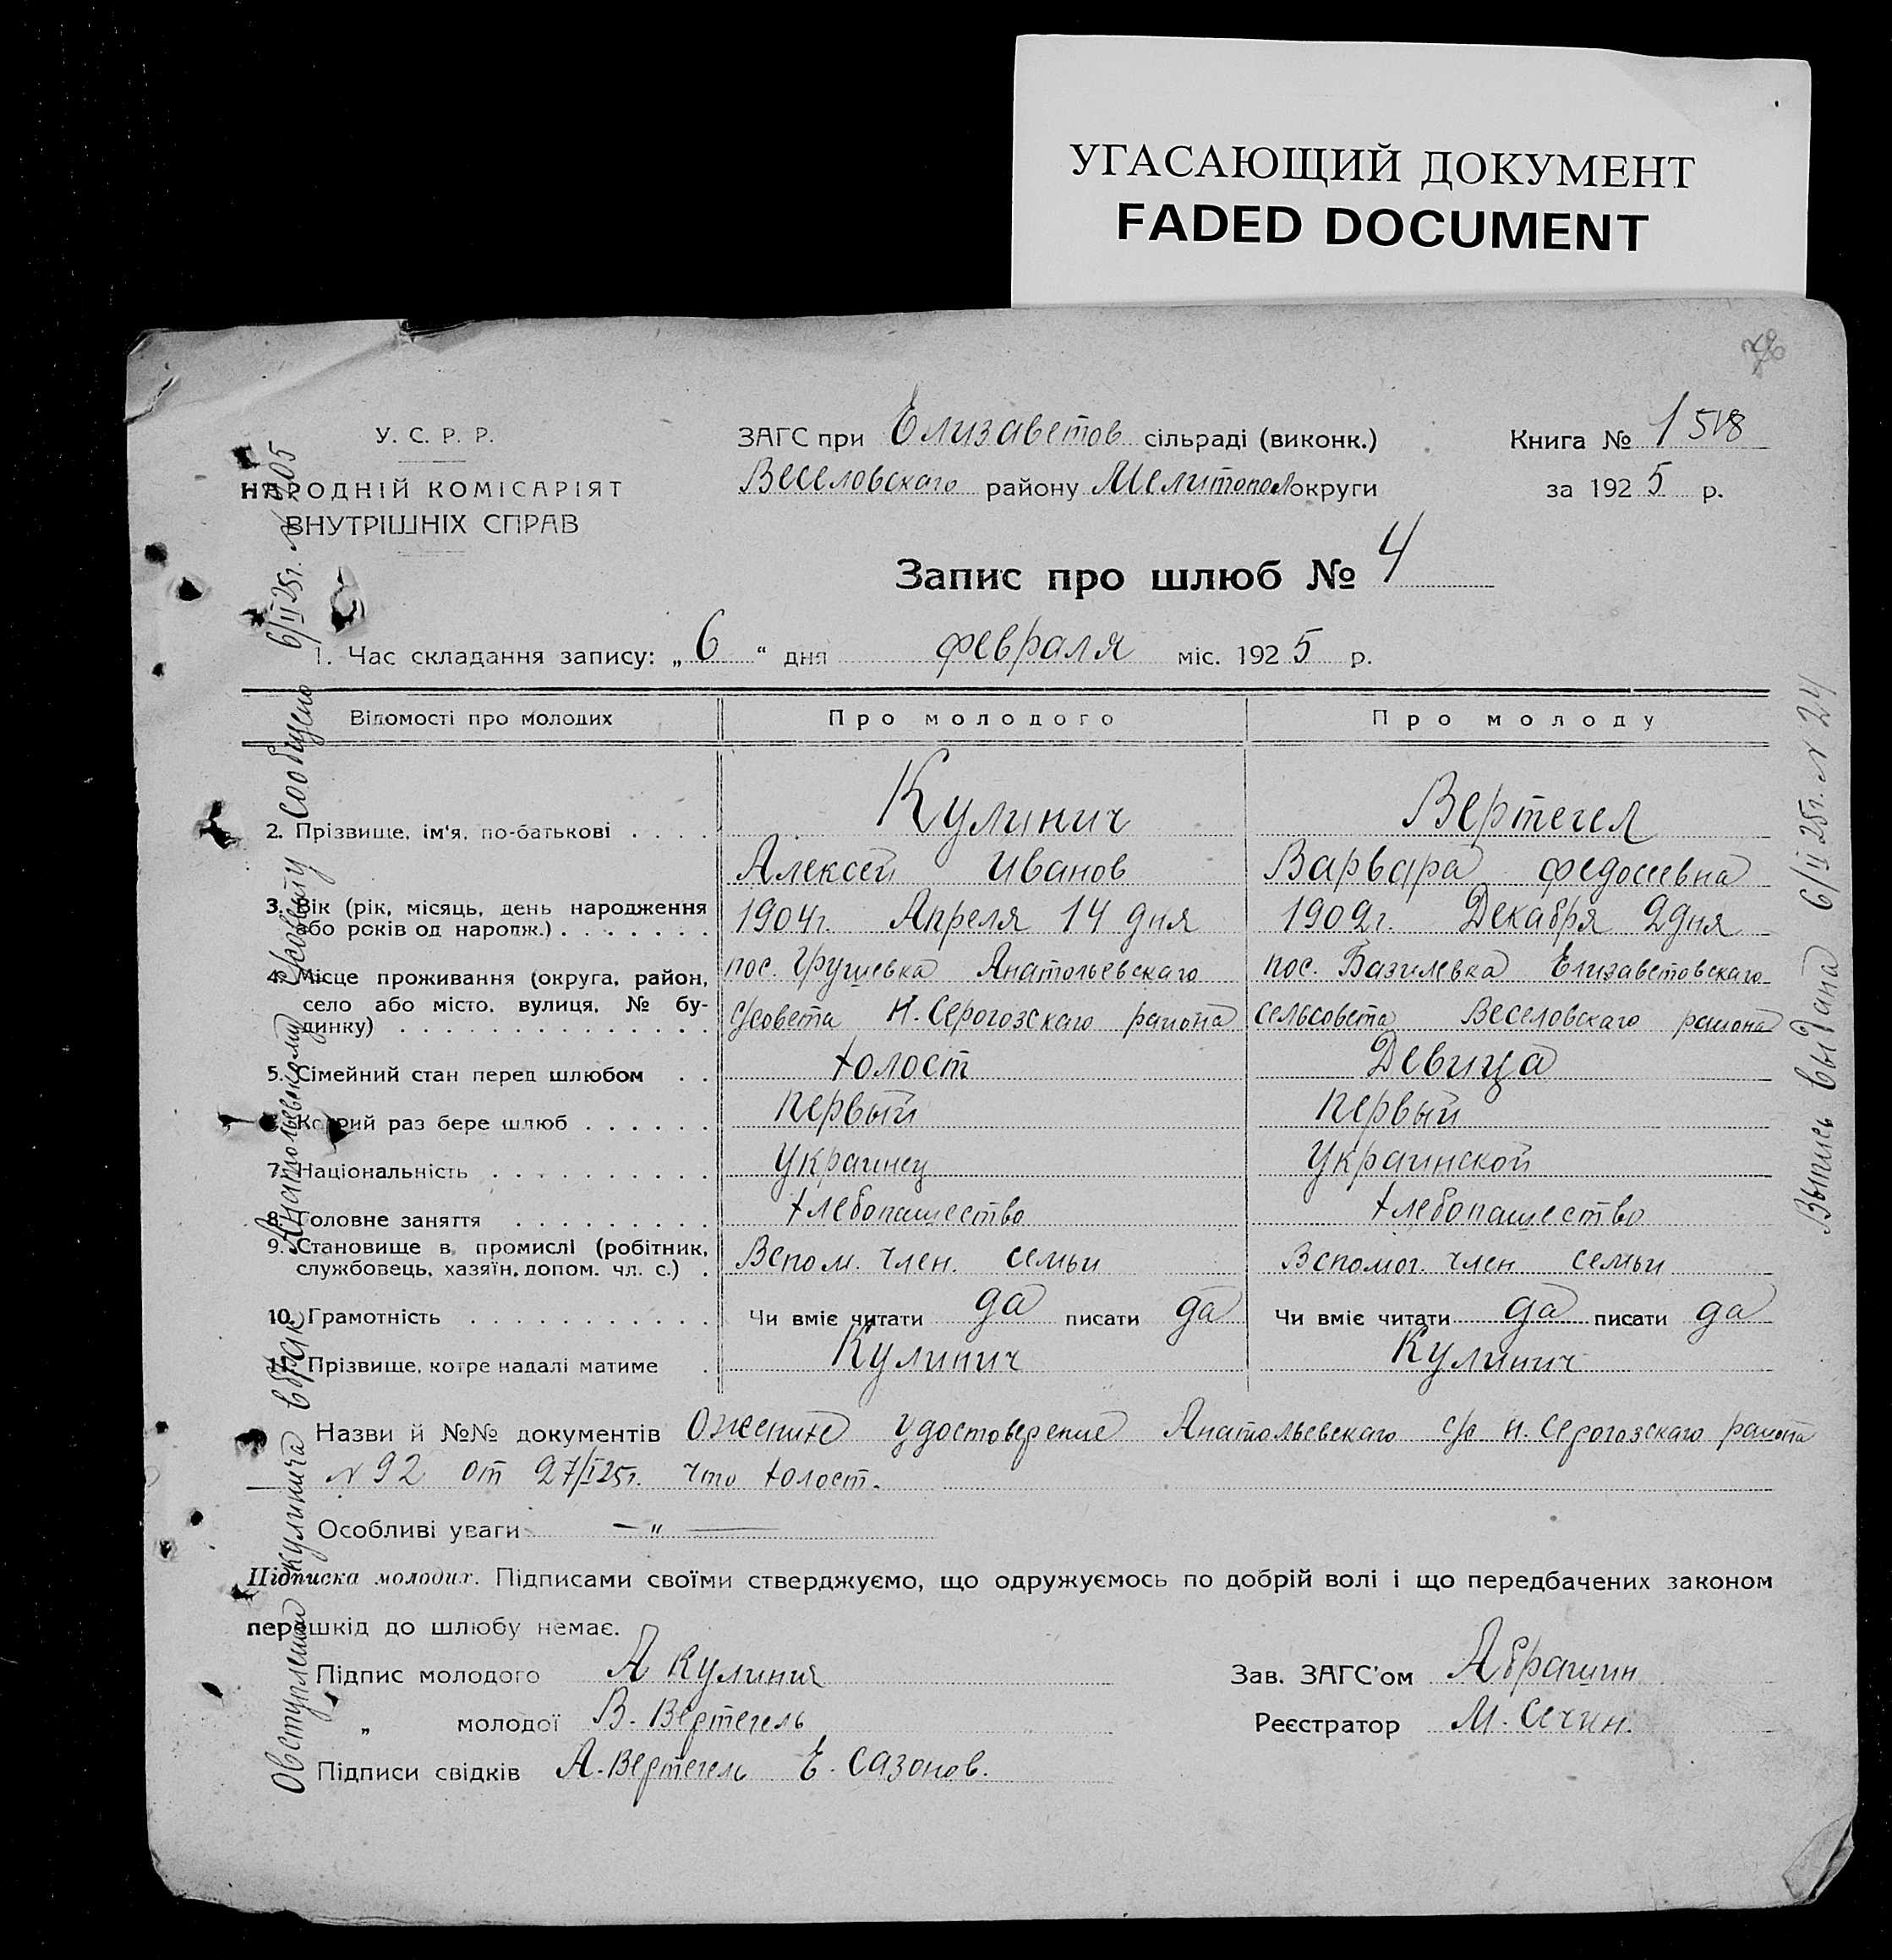 УГАСАЮЩИЙ ДОКУМЕНТ
FADED DOCUMENT
У. С. Р. Р.
НАРОДНІЙ КОМІСАРІЯТ
ВНУТРІШНІХ СПРАВ
ЗАГС при Елизаветов сільраді (виконк.)
Веселовскаго району Мелитопол округи
Книга № 1
за 1925 р.
Запис про шлюб № 4
1. Час складання запису: „6“ дня февраля міс. 1925 р.
Відомості про молодих Про молодого Про молоду
2. Прізвище, ім'я, по-батькові . . . . Кулинич Вертегел
Алексей Иванов Варвара Федосеевна
3. Вік (рік, місяць, день народження
або років од народж.) . . . . . . . 1904г. Апреля 14 дня 1902г. Декабря 2 дня
4. Місце проживання (округа, район, пос. Грушевка Анатольевскаго пос. Базилевка Елизаветовскаго
село або місто, вулиця, № бу-
динку) . . . . . . . . . . . . . . с/совета Н. Серогозскаго района сельсовета Веселовскаго района
5. Сімейний стан перед шлюбом . . холост Девица
6. Котрий раз бере шлюб . . . . . . первый первый
7. Національність . . . . . . . . . . украинец украинской
8. Головне заняття . . . . . . . . . хлебопашество хлебопашество
9. Становище в промислі (робітник,
службовець, хазяїн, допом. чл. с.) . Вспом. член. семьи Вспомог. член семьи
10. Грамотність . . . . . . . . . . . Чи вміє читати да писати да Чи вміє читати да писати да
11. Прізвище, котре надалі матиме . Кулинич Кулинич
Назви й №№ документів О женихе удостоверение Анатольевскаго с/с Н. Серогозскаго района
№ 92 от 27/I 25г. что холост.
Особливі уваги — „ —
Підписка молодих. Підписами своїми стверджуємо, що одружуємось по добрій волі і що передбачених законом
перешкід до шлюбу немає.
Підпис молодого А Кулинич
„ молодої В. Вертегель
Підписи свідків А. Вертегель Е. Сазонов.
Зав. ЗАГС'ом Абрашин
Реєстратор М. Сечин.
О вступлении Кулинича в брак Анатольевскому с/совету сообщено 6/II 25г. №
Выпись выдана 6/II 25г. № 24